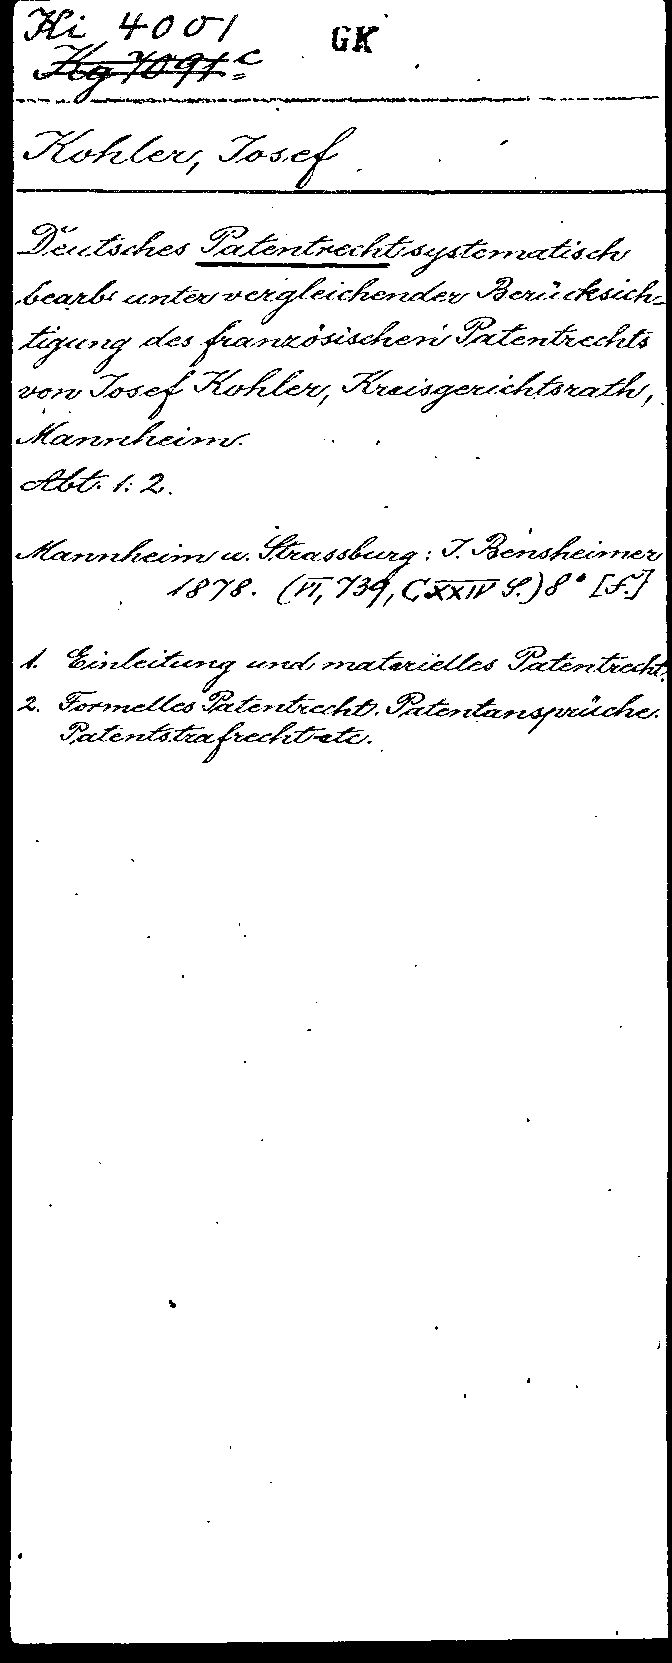 Hi 4001 GK
Kg 7091 c
Kohler, Josef
Deutsches Patentrecht systematisch
bearb. unter vergleichender Berücksich-
tigung des französischen Patentrechts
von Josef Kohler, Kreisgerichtsrath,
Mannheim.
Abt. 1. 2.
Mannheim u. Strassburg: J. Bensheimer
1878. (VI, 739, CXXIV S.) 8° [f.]
1. Einleitung und materielles Patentrecht.
2. Formelles Patentrecht. Patentansprüche.
Patentstrafrecht etc.